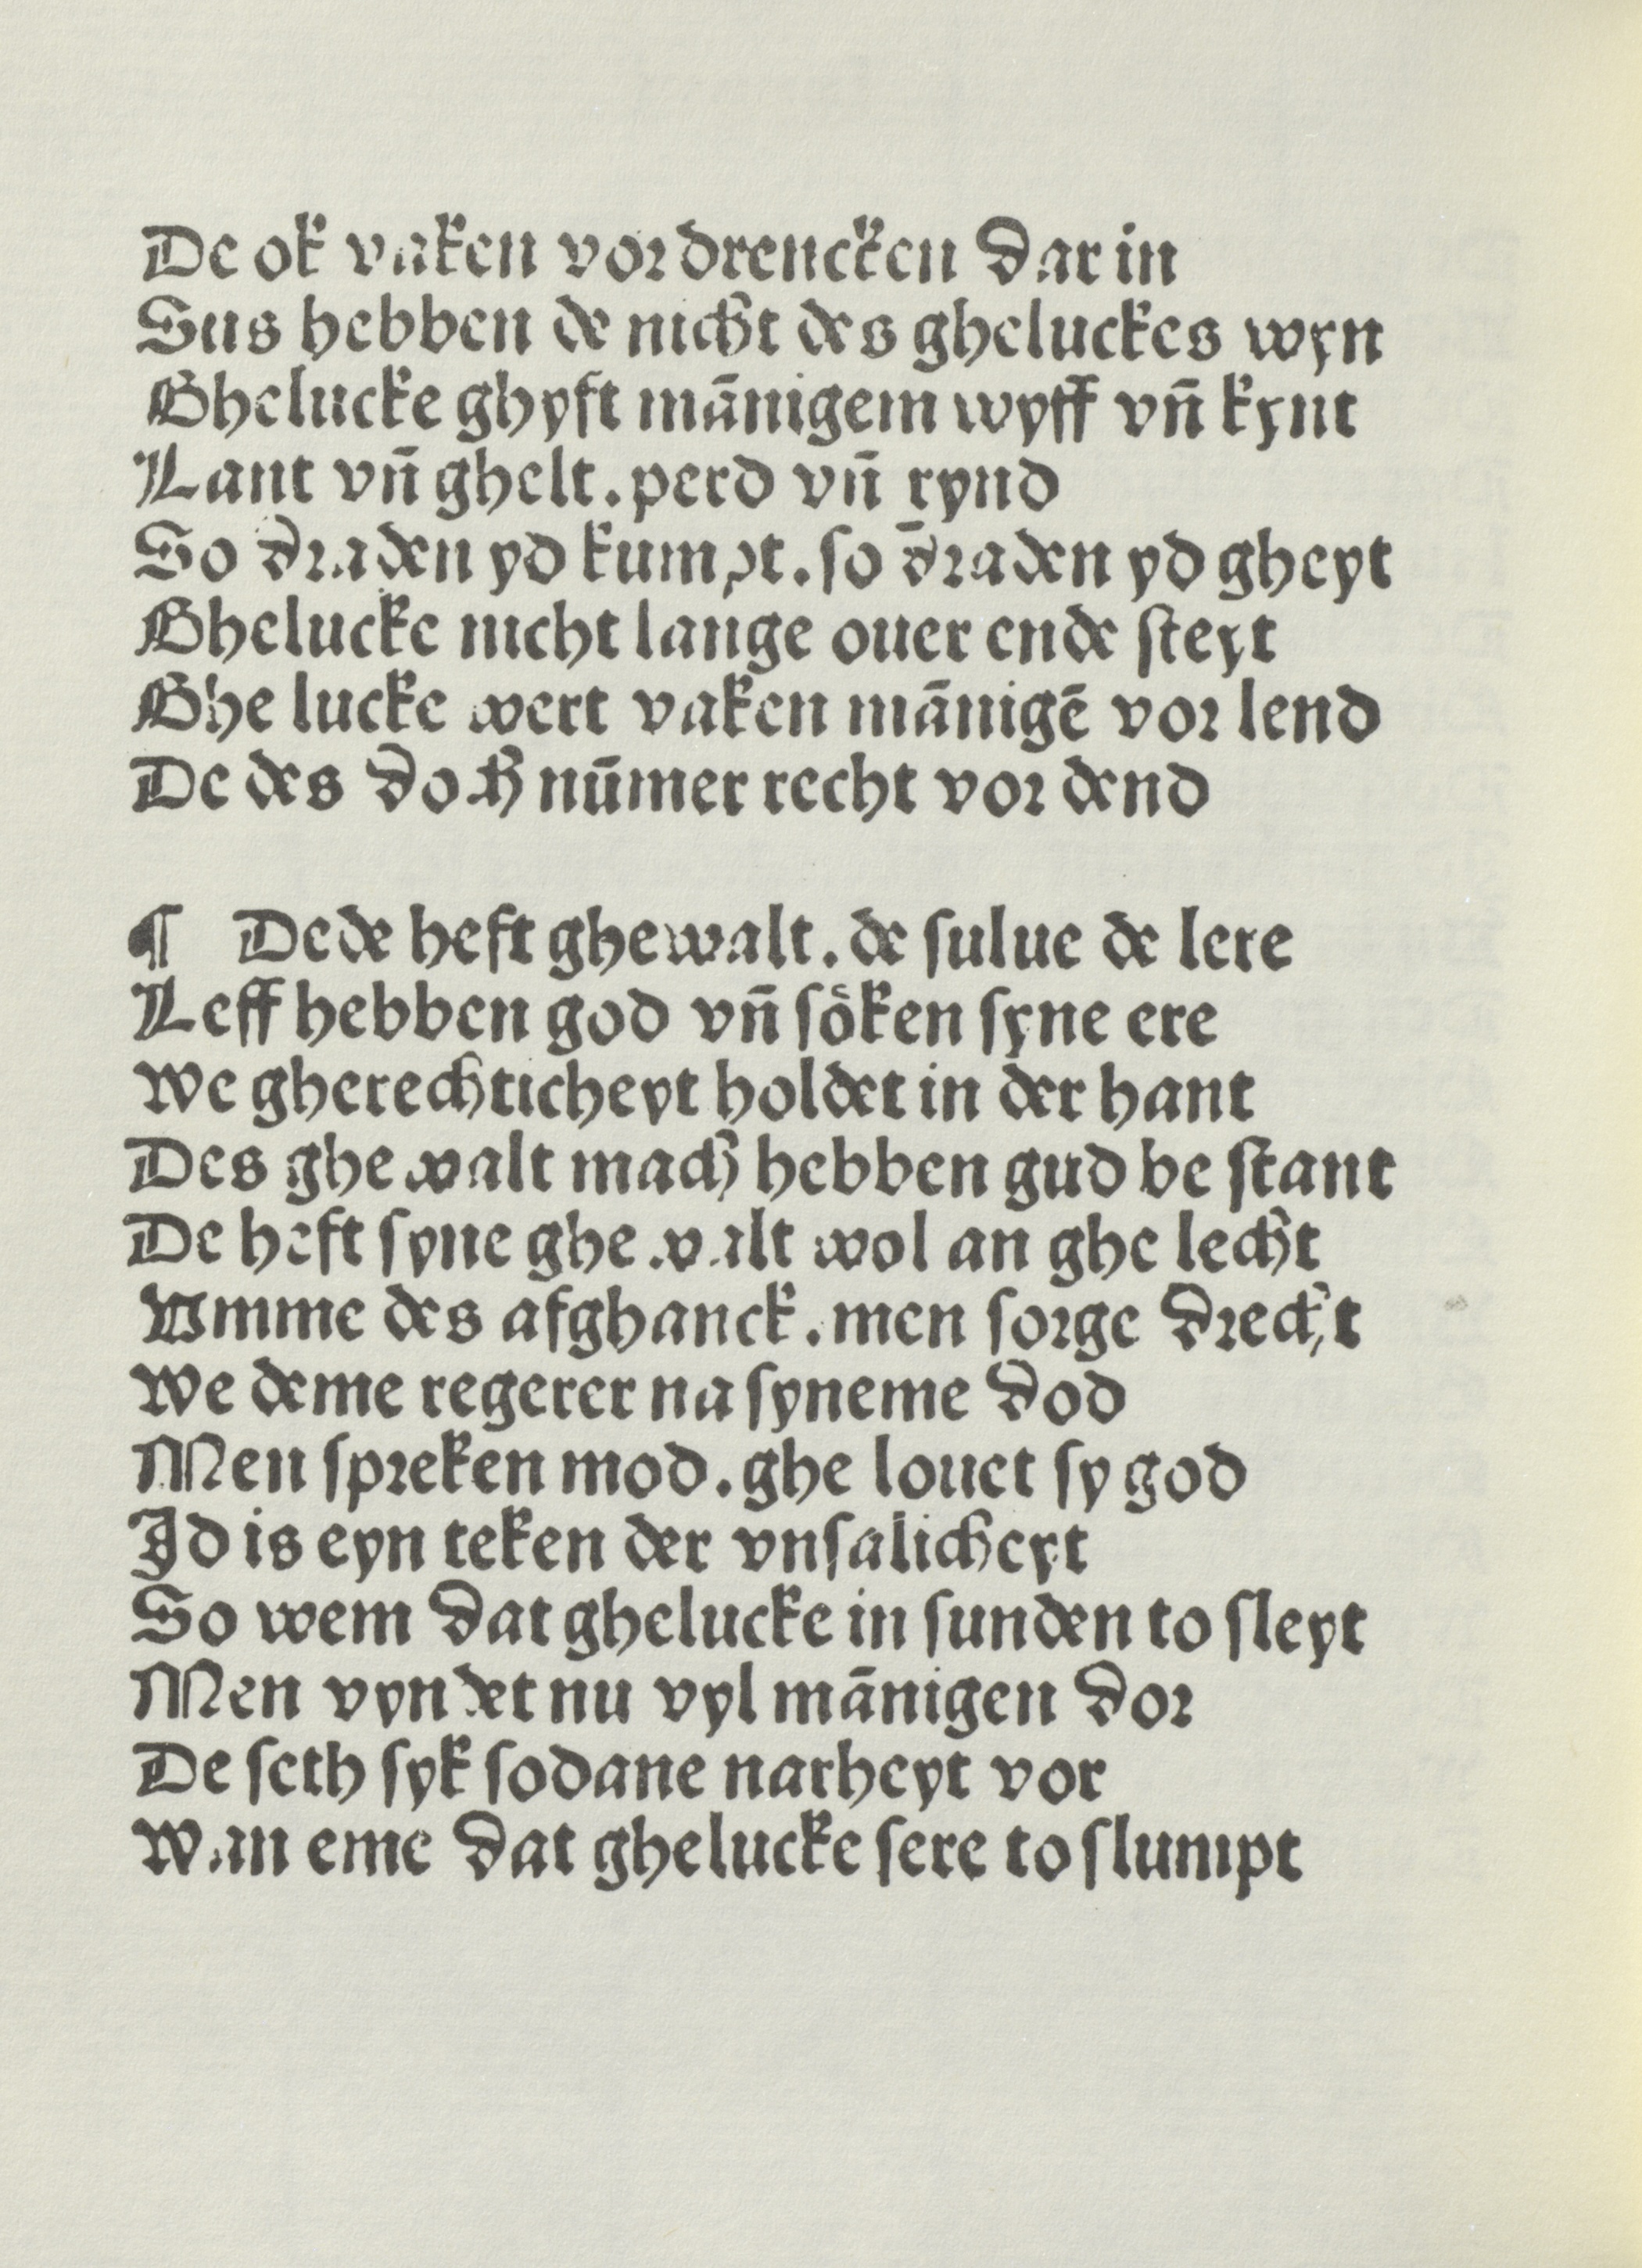 De ok vaken vor drencken dar in
Sus hebben de nicht des gheluckes wyn
Ghelucke ghyft mānigem wyff vn̄ kynt
Lant vn̄ ghelt. perd vn̄ rynd
So draden yd kumpt. so draden yd gheyt
Ghelucke nicht lange ouer ende steyt
Ghe lucke wert vaken mānigē vor lend
De des doch nūmer recht vor dend
¶ De de heft ghewalt. de sulue de lere
Leff hebben god vn̄ soͤken syne ere
We gherechticheyt holdet in der hant
Des ghe walt mach hebben gud be stant
De heft syne ghe walt wol an ghe lecht
Vmme des afghanck. men sorge drecht
We deme regerer na syneme dod
Men spreken mod. ghe louet sy god
Id is eyn teken der vnsalicheyt
So wem dat ghelucke in sunden to sleyt
Men vyndet nu vyl mānigen dor
De seth syk sodane narheyt vor
Wan eme dat ghelucke sere to slumpt